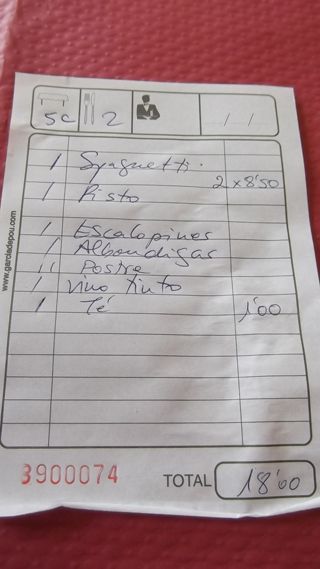 5c 2 / /
1 Spaguetti.
2x8'50
1 Pisto
1 Escalopines
1 Albondigas
11 Postre
1 vino tinto
1 Té 1'00
www.garciadepou.com
3900074 TOTAL 18'00